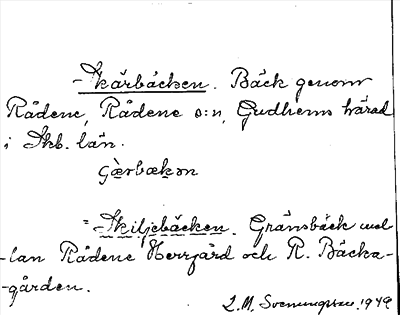 - Skärbäcken. Bäck genom
Rådene, Rådene s:n, Gudhems härad
i Skb. län.
gærbækən
= Skiljebäcken. Gränsbäck mel-
lan Rådene Herrgård och R. Backa-
-gården.
L.M. Svenungsson. 1949